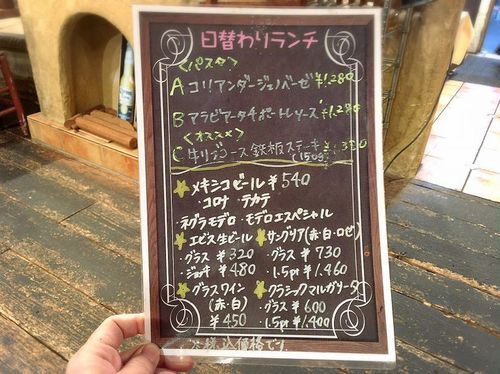 日替わりランチ
<パスタ>
A コリアンダージェノベーゼ ¥1.280
B アラビアータチポートレソース ¥1.280
<オススメ>
C 牛リブロース鉄板ステーキ
(150g)
メキシコビール ¥540
・コロナ ・テカテ
・ネグラモデロ ・モデロエスペシャル
エビス生ビール サングリア(赤・白・ロゼ)
・グラス ¥320 ・グラス ¥730
・ジョッキ ¥480 ・1.5pt ¥1.460
グラスワイン クラシックマルガリータ
(赤・白) グラス ¥600
¥450 ・1.5pt ¥1.400
※税込価格です。